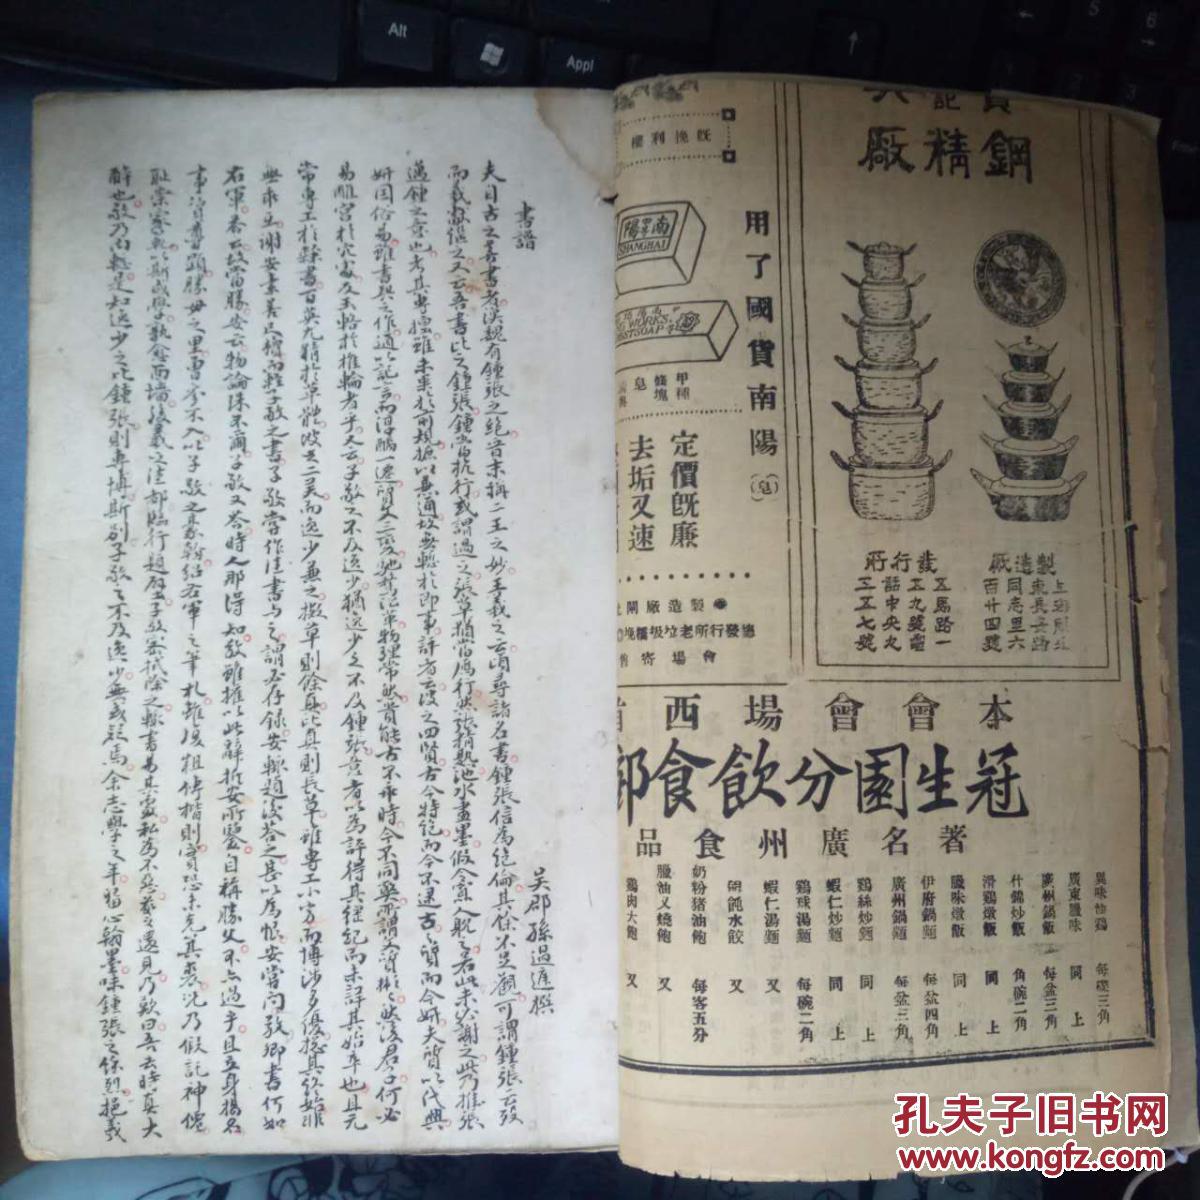 Alt
Appl
Enter
書譜
吳郡孫過庭撰
夫自古之善書者漢魏有鍾張之絕晉末稱二王之妙王羲之云頃尋諸名書鍾張信為絕倫其餘不足觀可謂鍾張云歿
而羲獻繼之又云吾書比之鍾張鍾當抗行或謂過之張草猶當鴈行然張精熟池水盡墨假令寡人耽之若此未必謝之此乃推張
邁鍾之意也考其專擅雖未果於前規摭以兼通故無慙於即事評者云彼之四賢古今特絕而今不逮古古質而今妍夫質以代興
妍因俗易雖書契之作適以記言而淳醨一遷質文三變馳騖沿革物理常然貴能古不乖時今不同弊所謂文質彬彬然後君子何必
易雕宮於穴處反玉輅於椎輪者乎又云子敬之不及逸少猶逸少之不及鍾張意者以為評得其綱紀而未詳其始卒也且元
常專工於隸書百英尤精於草體彼之二美而逸少兼之擬草則餘真比真則長草雖專工小劣而博涉多優摠其終始非
無乖互謝安素善尺牘而輕子敬之書子敬嘗作佳書與之謂必存錄安輒題後答之甚以為恨安嘗問敬卿書何如
右軍答云故當勝安云物論殊不爾子敬又答時人那得知敬雖權以此辭折安所鑒自稱勝父不亦過乎且立身揚名
事資尊顯勝母之里曾參不入以子敬之豪翰紹右軍之筆札雖復粗傳楷則實恐未克箕裘況乃假託神僊
恥崇家範以斯成學孰愈面墻後羲之往都臨行題壁子敬密拭除之輒書易其處私為不惡羲之還見乃歎曰吾去時真大
醉也敬乃內慙是知逸少之比鍾張則專博斯別子敬之不及逸少無或疑焉余志學之年留心翰墨味鍾張之餘烈挹羲
記
鋼精廠
製造廠
發行所
五馬路一
五九號電
話中央九
五五七號
同志里六
百廿四號
既挽利權
南陽
SHANGHAI
WORKS.
用了國貨南陽(皂)
甲種
條塊
皂
定價既廉
去垢又速
製造廠閘
總發行所老垃圾橋境
會場寄售
本會會場西首
冠生園分飲食部
著名廣州食品
異味怡鷄 每碟三角
廣東臘味 同上
廣州鍋飯 每盆三角
什錦炒飯 角碗二角
滑鷄燉飯 同上
臘味燉飯 同上
伊府鍋麵 每盆四角
廣州鍋麵 每盆三角
鷄絲炒麵 同上
蝦仁炒麵 同上
鷄球湯麵 每碗二角
蝦仁湯麵 又
碗飩水餃 又
奶粉豬油飽 每客五分
臘油叉燒飽 又
鷄肉大飽 又
孔夫子旧书网
www.kongfz.com